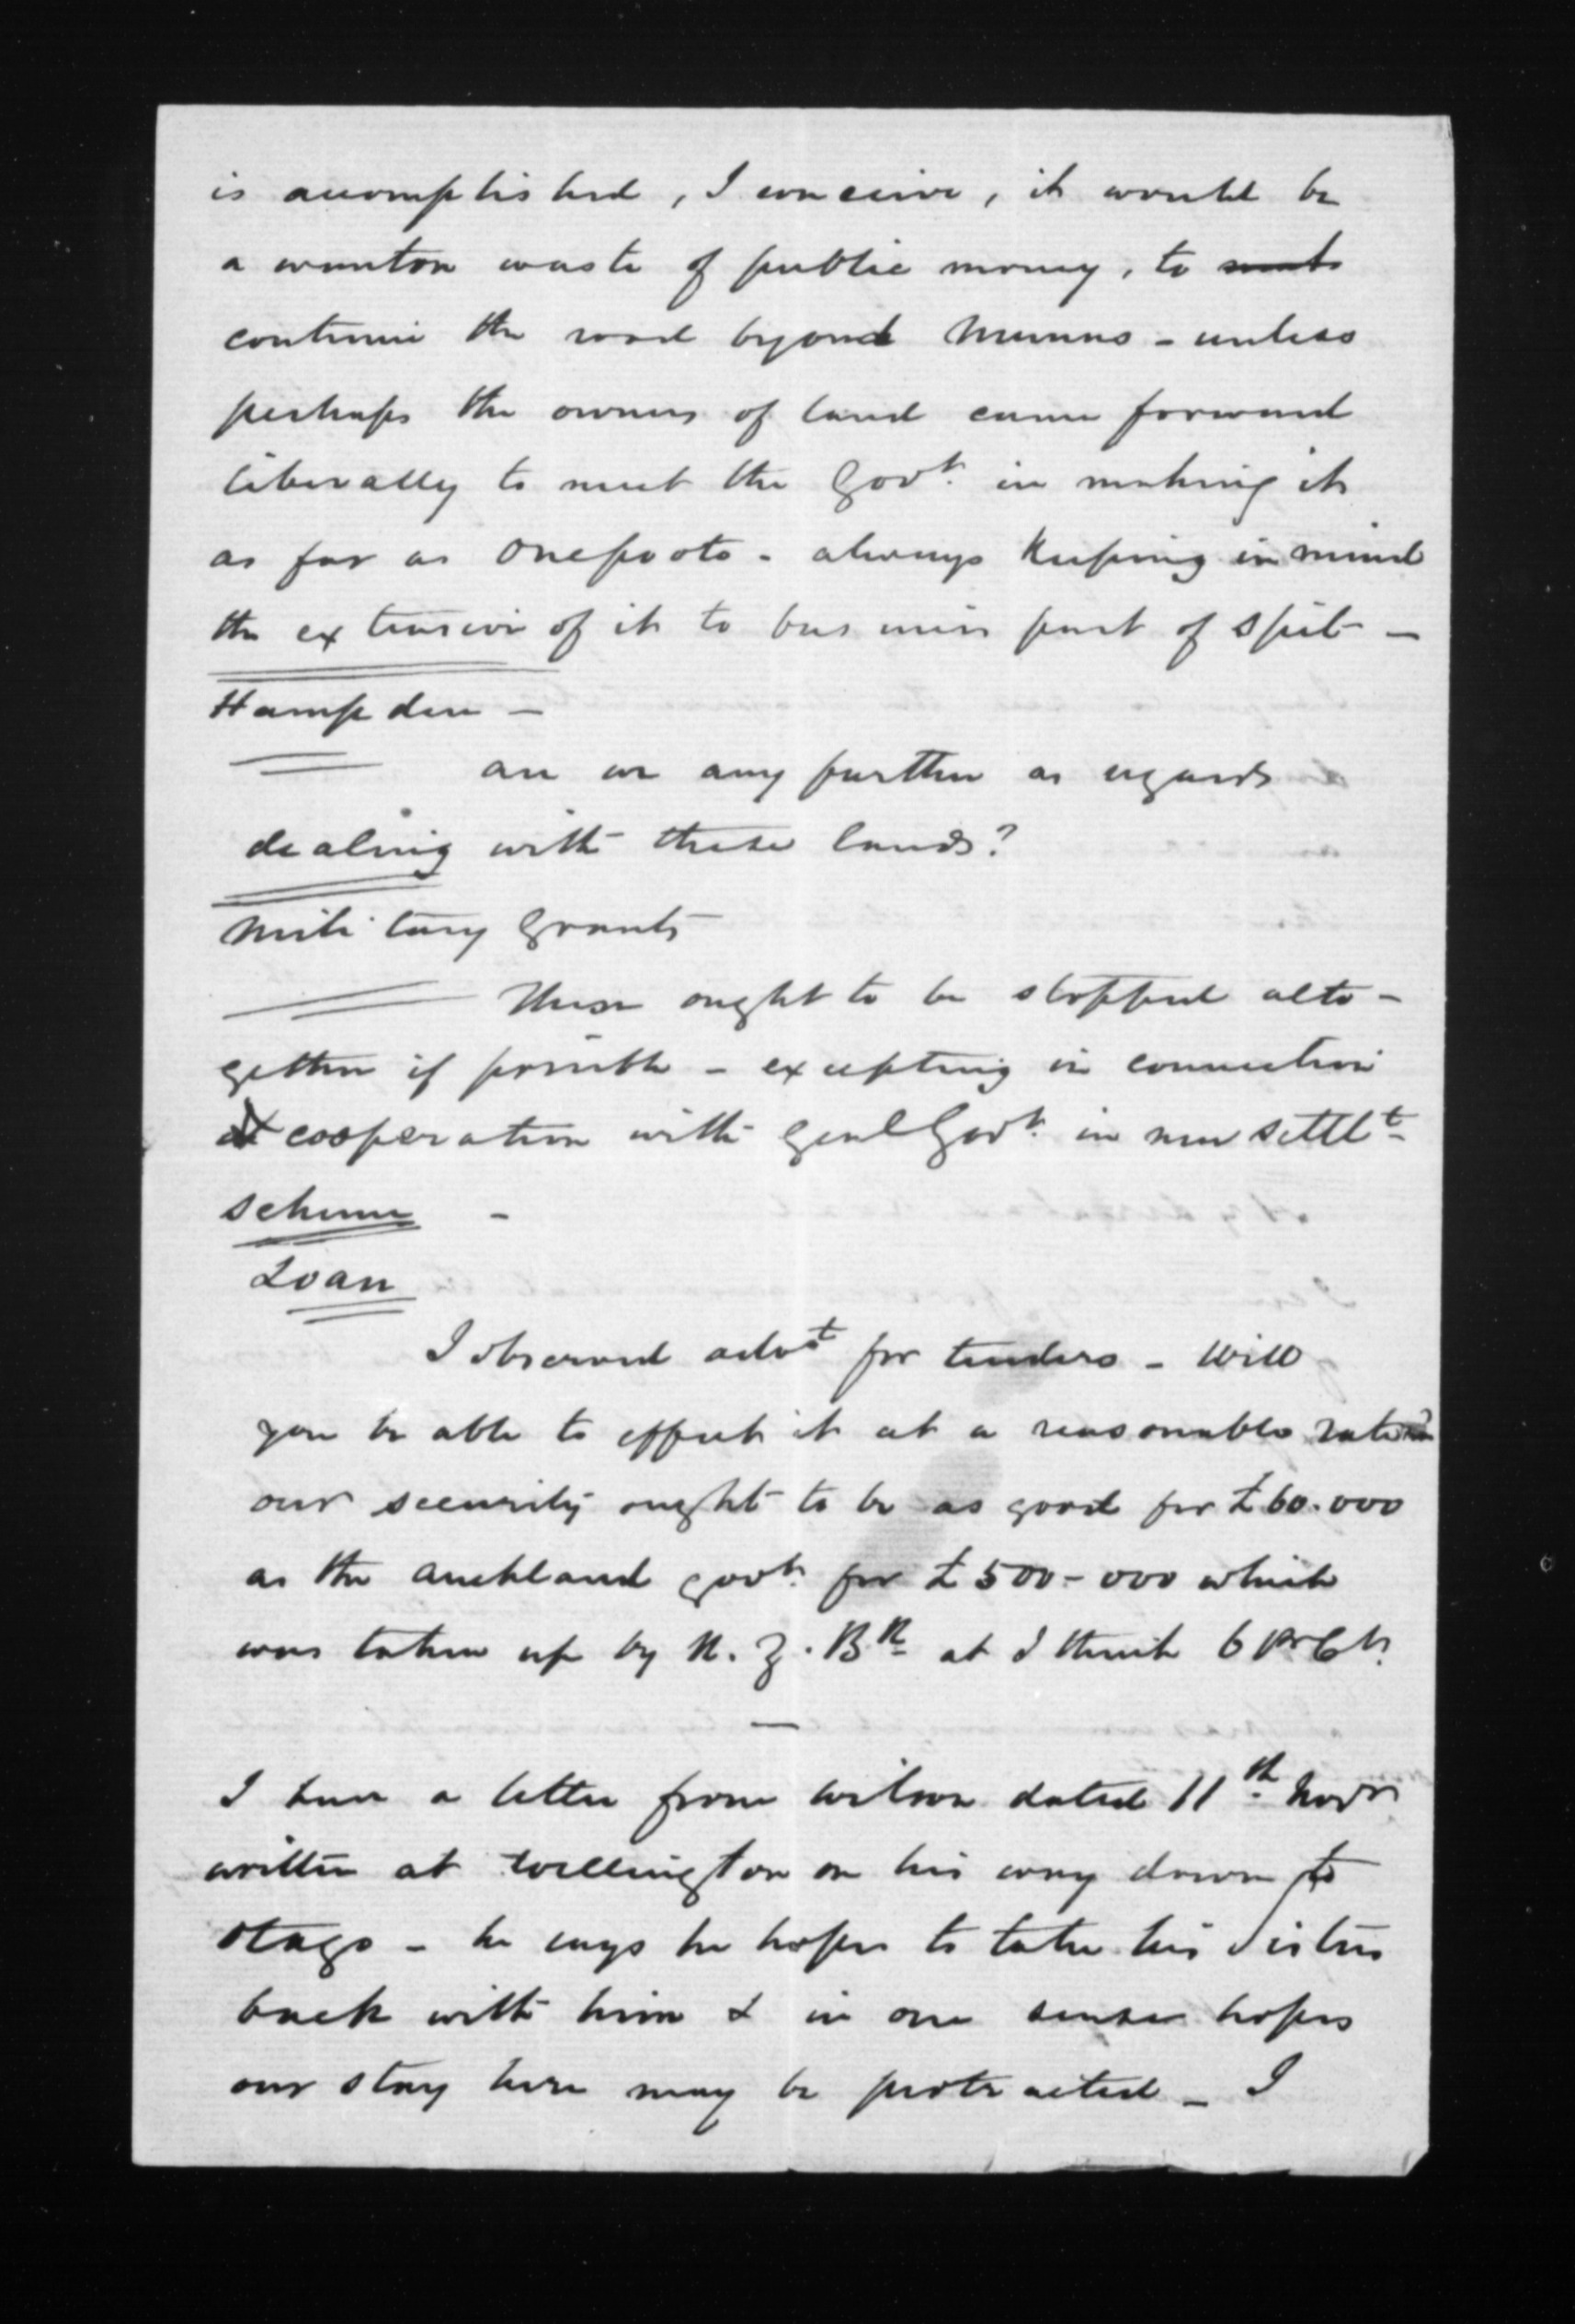 is accomplished, I conceive, it would be
a wanton waste of public money, to
continue the road beyond Munns - unless
perhaps the owners of land came forward
liberally to meet the Govt. in making it
as far as Onepoto - always keeping in mind
the extension of it to business part of Spit -
Hampden -
are we any further as regards
dealing with these lands?
Military Grants
These ought to be stopped alto-
gether if possible - excepting in connection
& cooperation with Genl Govt. in new Settlt
scheme -
Loan
I observed advt for tenders - Will
you be able to effect it at a reasonable rate
our security ought to be as good for £60.000
as the Auckland govt. for £500-000 which
was taken up by N.Z. Bk at I think 6 Pr Ct.
-
I have a letter from Wilson dated 11th Novr
written at Wellington on his way down to
Otago - he says he hopes to take his Sisters
back with him & in one sense hopes
our stay here may be protracted - I